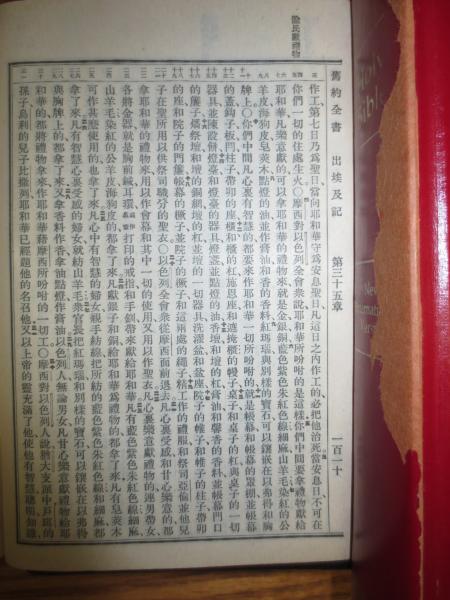 舊約全書 出埃及記 第三十五章 一百二十
作工第七日乃爲聖日當向耶和華守爲安息聖日凡這日之內作工的必把他治死當安息日不可在
你們一切的住處生火○摩西對以色列全會衆說耶和華所吩咐的是這樣你們中間要拿禮物獻給
耶和華凡樂意獻的可以拿耶和華的禮物來就是金銀銅藍色紫色朱紅色線細麻山羊毛染紅的公
羊皮海狗皮皂莢木點燈的油並作膏油和香的香料紅瑪瑙與別樣的寶石可以鑲嵌在以弗得和胸
牌上○你們中間凡心裏有智慧的都要來作耶和華一切所吩咐的就是帳幕和帳幕的罩棚並帳幕
的蓋鈎子板閂柱子帶卯的座櫃和櫃的杠施恩座和遮掩櫃的幔子桌子和桌子的杠與桌子的一切
器具並陳設餅燈臺和燈臺的器具燈盞並點燈的油香壇和壇的杠膏油和馨香的香料並帳幕門口
的簾子燔祭壇和壇的銅網壇的杠並壇的一切器具洗濯盆和盆座院子的帷子和帷子的柱子帶卯
的座和院子的門簾帳幕的橛子並院子的橛子和這兩處的繩子精工作的禮服和祭司亞倫並他兒
子在聖所用以供祭司職分的聖衣○以色列全會衆從摩西面前退去凡心裏受感和甘心樂意的都
拿耶和華的禮物來用以作會幕和其中一切的使用又用以作聖衣凡心裏樂意獻禮物的連男帶女
各將金器就是胸前鍼耳環打印的戒指和手釧帶來獻給耶和華凡有藍色紫色朱紅色線細麻
山羊毛染紅的公羊皮海狗皮的都拿了來凡獻銀子和銅給耶和華爲禮物的都拿了來凡有皂莢木
可作甚麼使用的也拿了來凡心中有智慧的婦女親手紡線把所紡的藍色紫色朱紅色線細麻都
拿了來凡有智慧心裏受感的婦女就紡山羊毛衆官長把紅瑪瑙和別樣的寶石可以鑲嵌在以弗得
與胸牌上的都拿了來又拿香料作香拿油點燈作膏油以色列人無論男女凡甘心樂意獻禮物給耶
和華的都將禮物拿來作耶和華藉摩西所吩咐的一切工○摩西對以色列人說猶大支派中戶珥的
孫子烏利的兒子比撒列耶和華已經題他的名召他又以上帝的靈充滿了他使他有智慧聰明知識
除民獻禮物
Holy
Bible